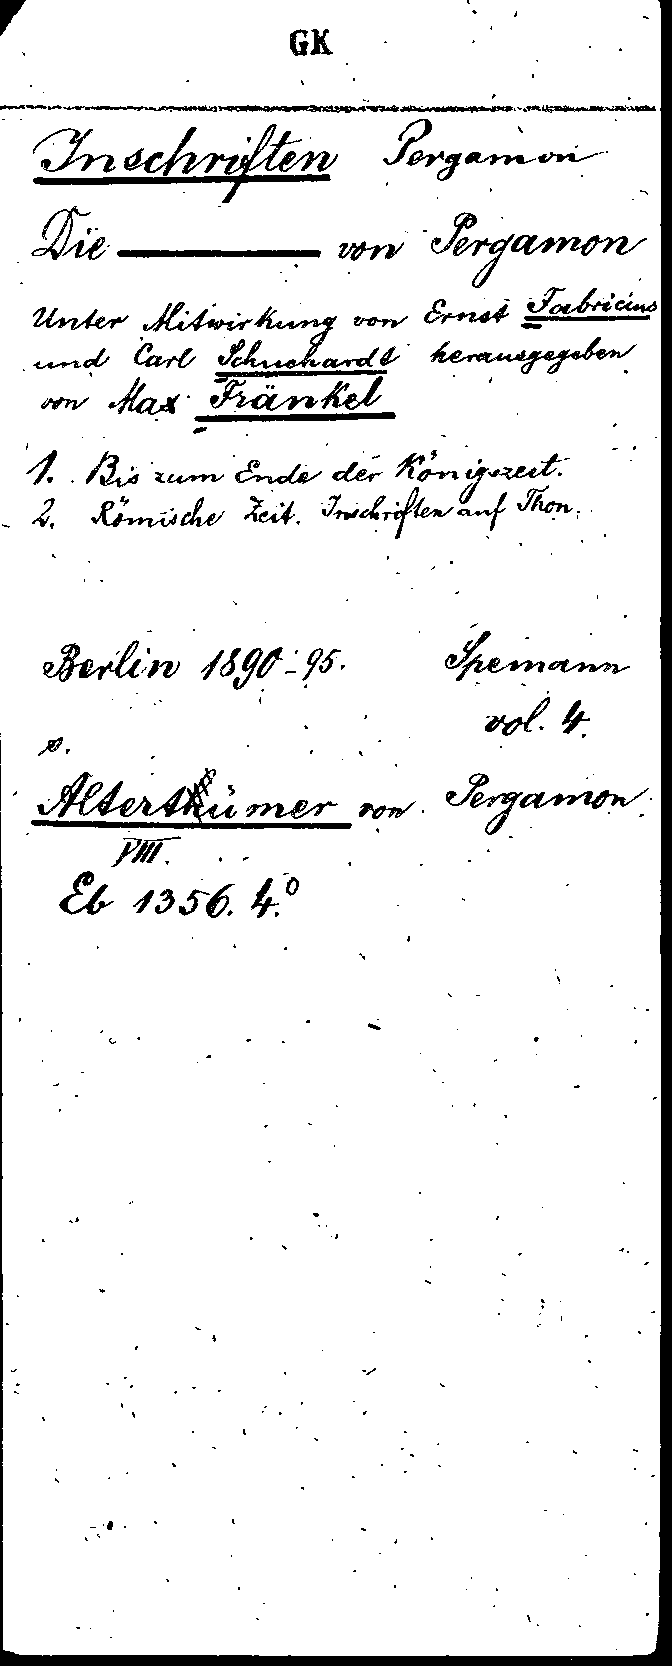 GK
Inschriften Pergamon
Die ——— von Pergamon
Unter Mitwirkung von Ernst Fabricius
und Carl Schuchardt herausgegeben
von Max Fränkel
1. Bis zum Ende der Königszeit.
2. Römische Zeit. Inschriften auf Thon.
Berlin 1890-95. Spemann
vol. 4.
s.
Altertümer von Pergamon
VIII.
Eb 1356. 4.º